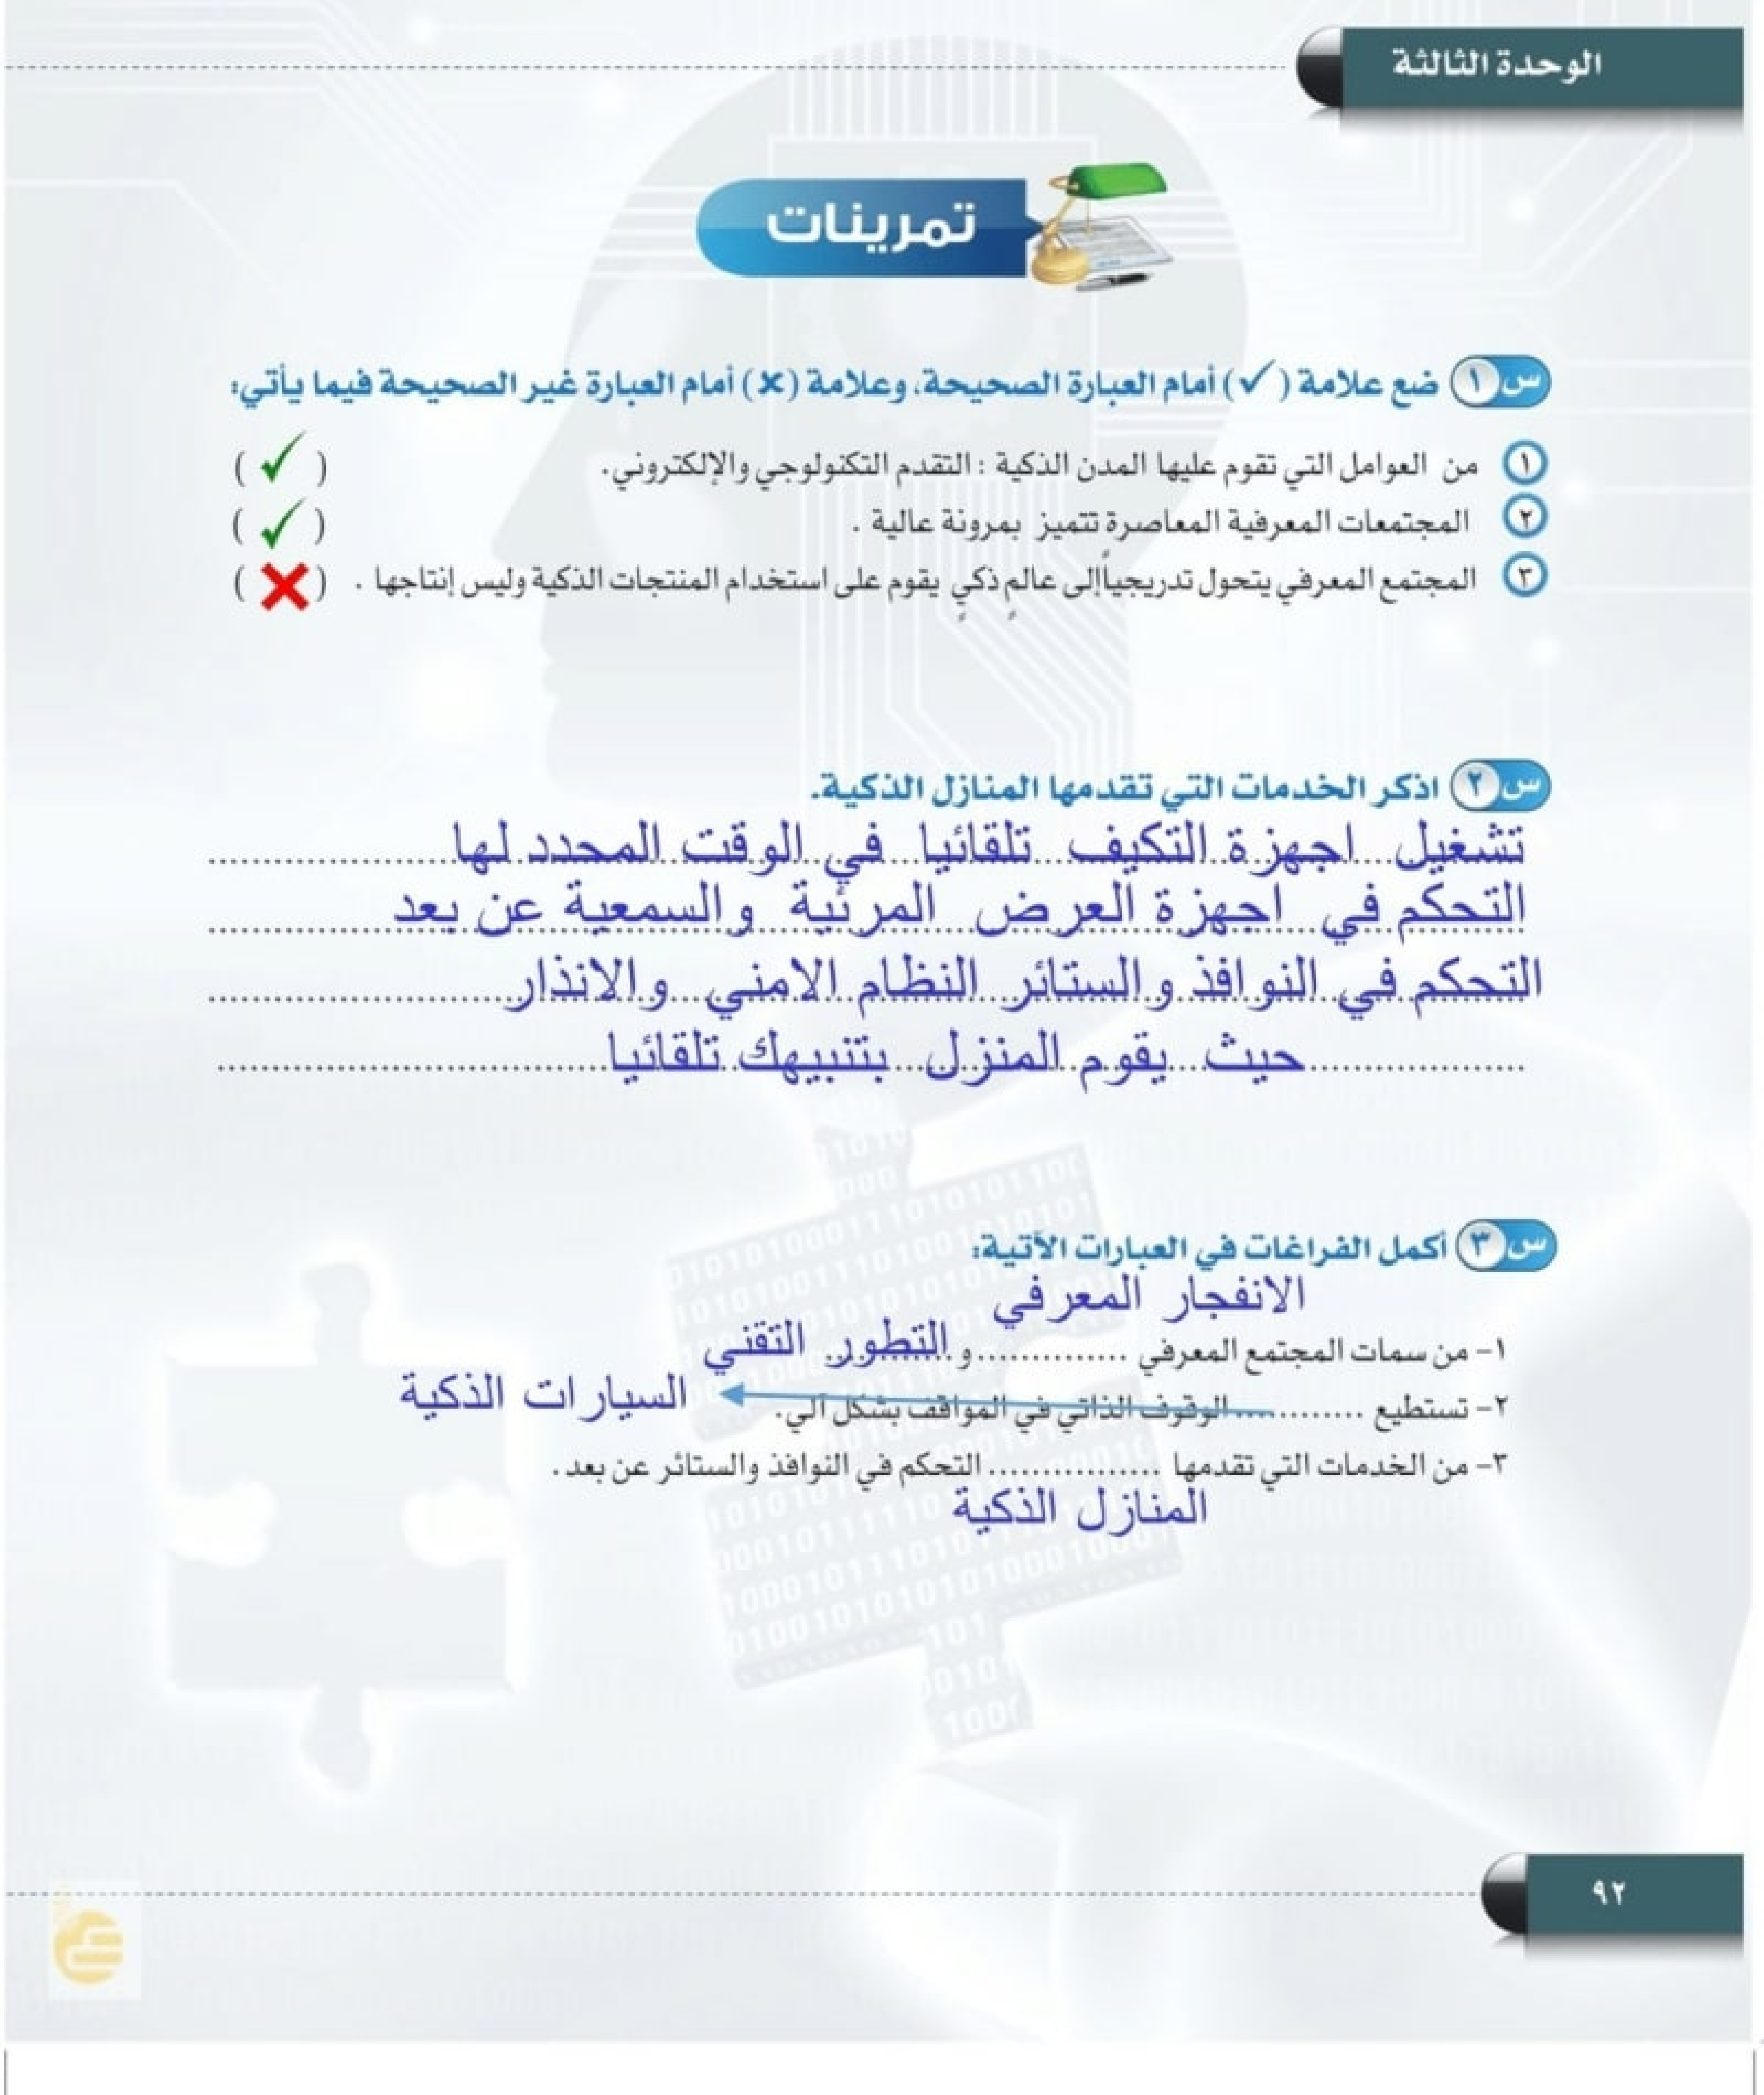 الوحدة الثالثة
تمرينات
س ١ ضع علامة (✓) أمام العبارة الصحيحة، وعلامة (✗) أمام العبارة غير الصحيحة فيما يأتي:
١ من العوامل التي تقوم عليها المدن الذكية : التقدم التكنولوجي والإلكتروني. ( ✓ )
٢ المجتمعات المعرفية المعاصرة تتميز بمرونة عالية . ( ✓ )
٣ المجتمع المعرفي يتحول تدريجياً إلى عالمٍ ذكيٍ يقوم على استخدام المنتجات الذكية وليس إنتاجها . ( ✗ )
س ٢ اذكر الخدمات التي تقدمها المنازل الذكية.
تشغيل اجهزة التكيف تلقائيا في الوقت المحدد لها
التحكم في اجهزة العرض المرئية والسمعية عن بعد
التحكم في النوافذ والستائر النظام الامني والانذار
حيث يقوم المنزل بتنبيهك تلقائيا
س ٣ أكمل الفراغات في العبارات الآتية:
الانفجار المعرفي
١- من سمات المجتمع المعرفي .............. و............ التطور التقني
٢- تستطيع ............ الوقوف الذاتي في المواقف بشكل آلي. السيارات الذكية
٣- من الخدمات التي تقدمها ................ التحكم في النوافذ والستائر عن بعد .
المنازل الذكية
1010
000
101
1000
٩٢